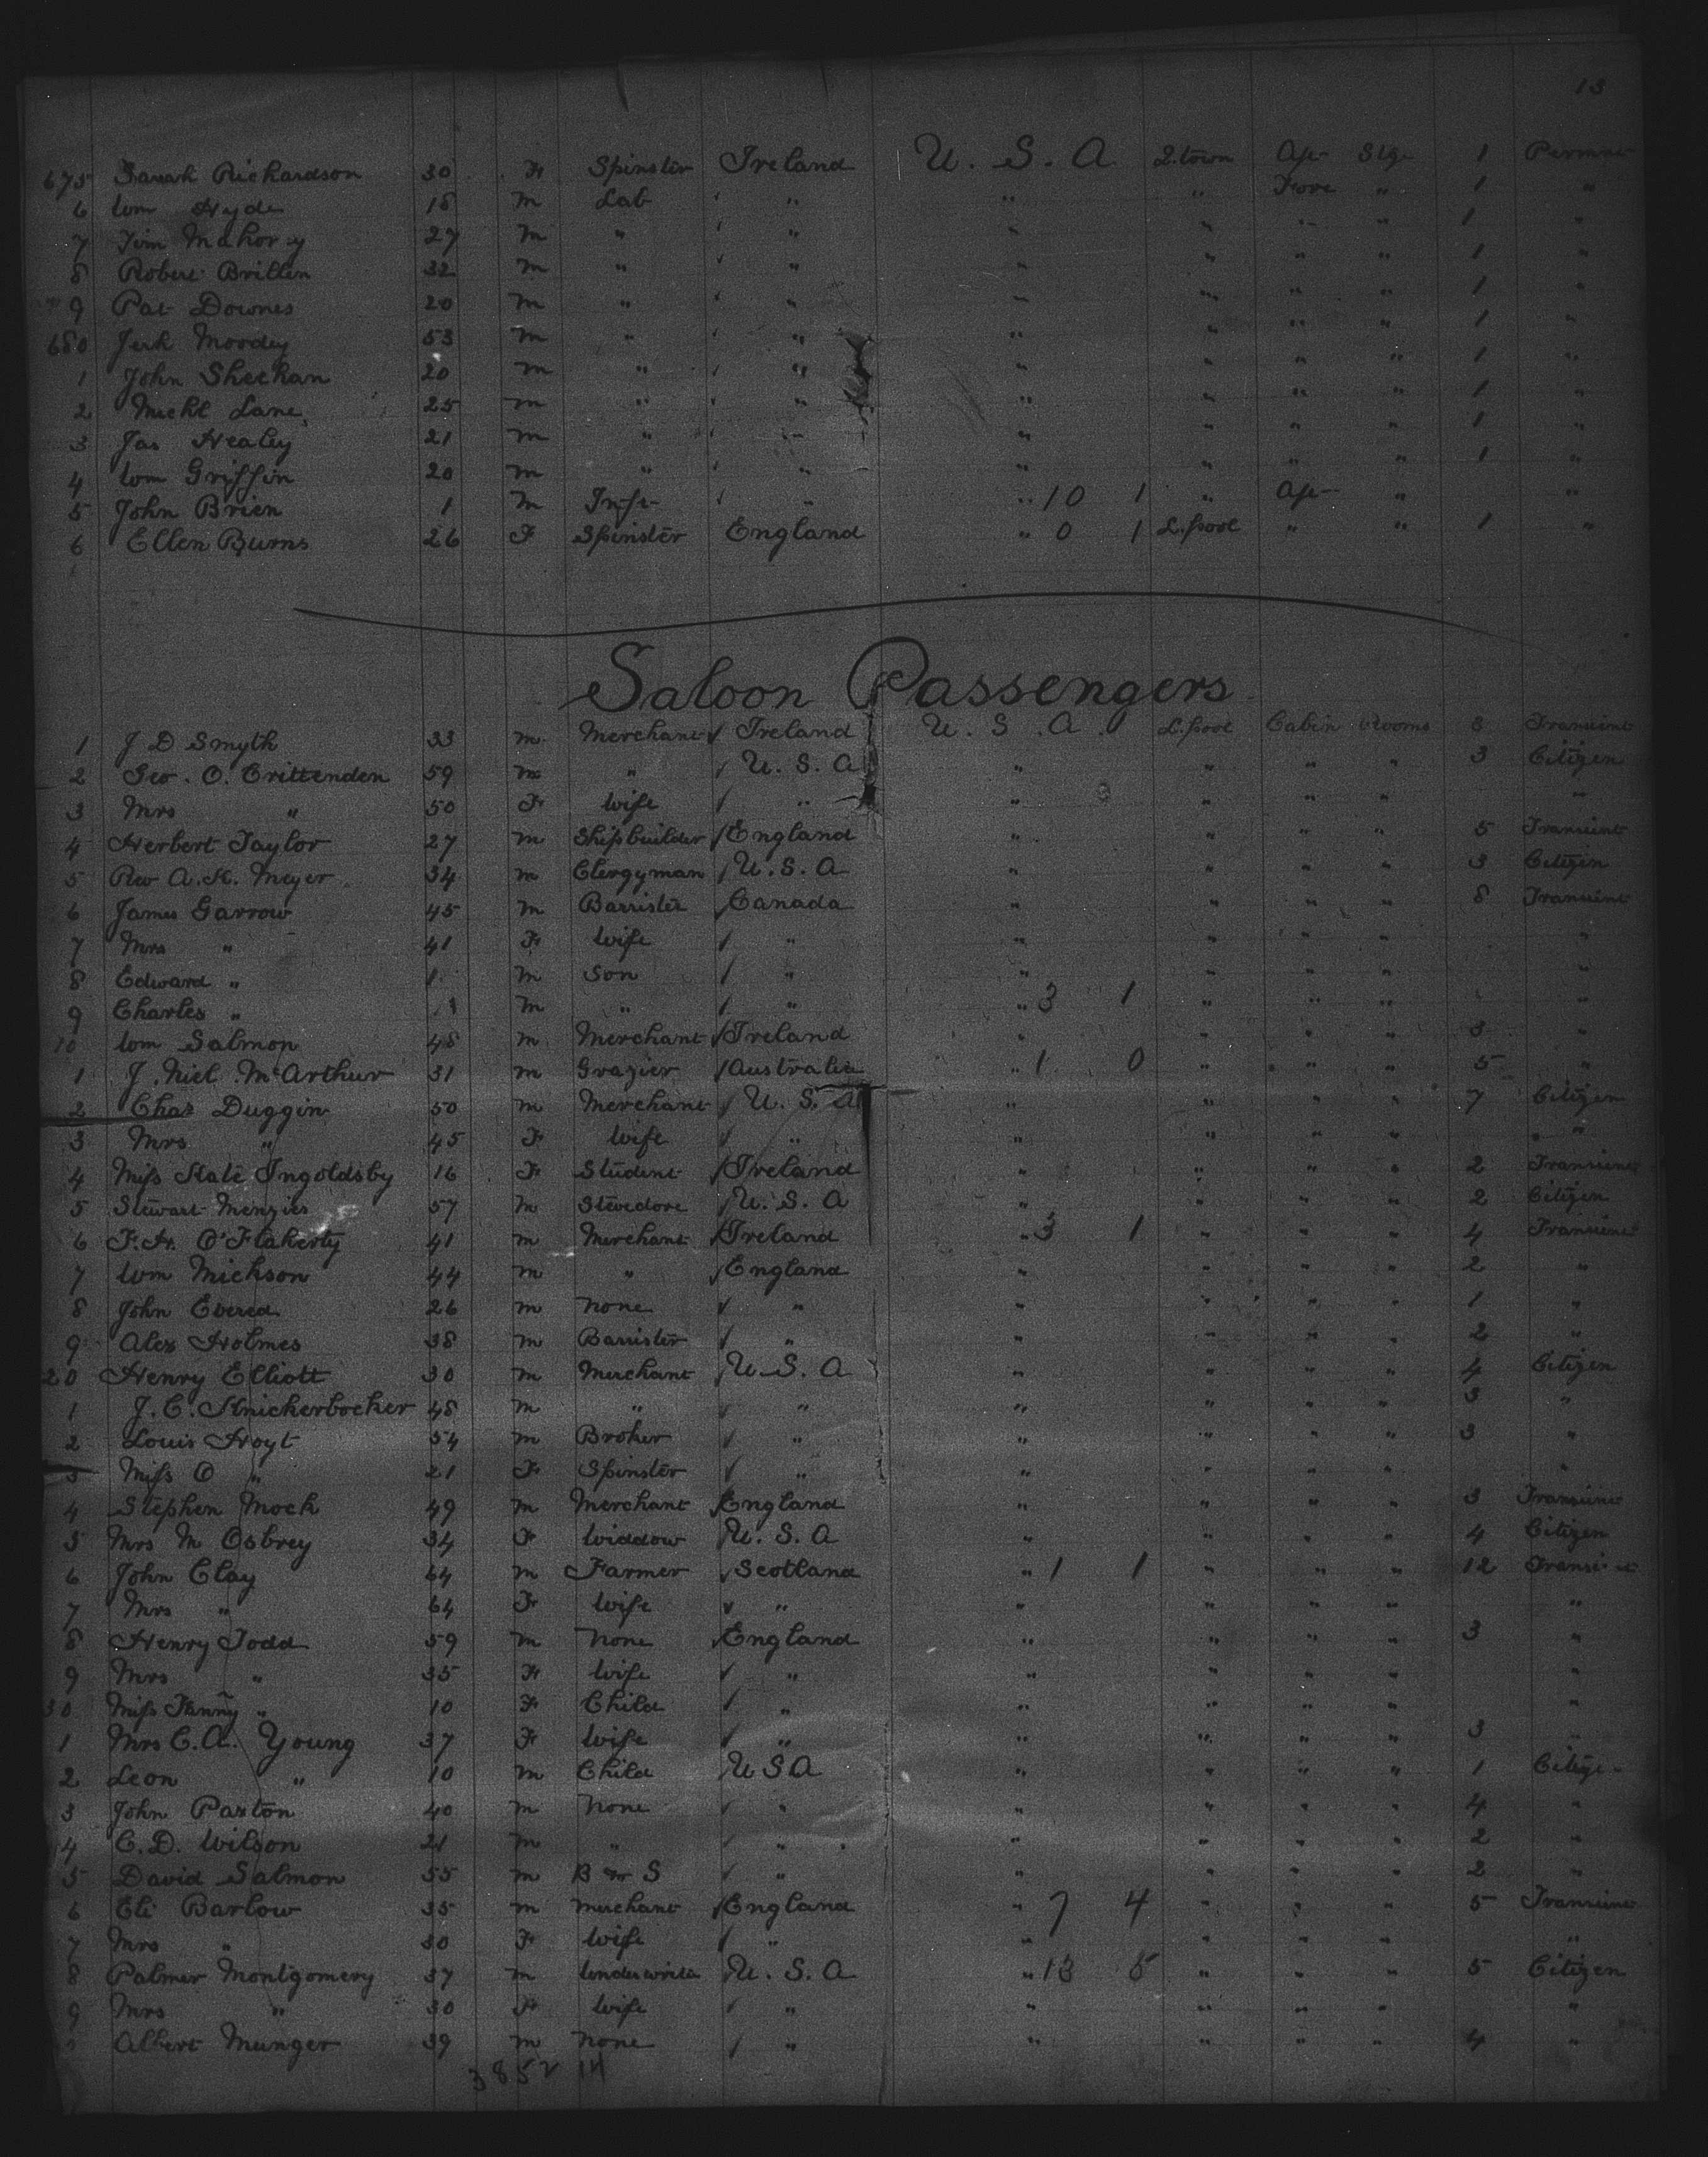 13
675 Sarah Richardson 30 F Spinster Ireland U. S. A Q.town Aft Stge 1 Permnt
6 Wm Hyde 18 M Lab " " " Fore " 1 "
7 Jim Mahony 27 M " " " " " " 1 "
8 Robert Britten 32 M " " " " " " 1 "
9 Pat Downes 20 M " " " " " " 1 "
680 Jerh Moodey 53 M " " " " " " 1 "
1 John Sheehan 20 M " " " " " " 1 "
2 Michl Lane 25 M " " " " " " 1 "
3 Jas Healey 21 M " " " " " " 1 "
4 Wm Griffin 20 M " " " " " " 1 "
5 John Brien 1 M Inft " " 10 1 " Aft " "
6 Ellen Burns 26 F Spinster England " 0 1 L.pool " " 1 "
Saloon Passengers
1 J D Smyth 33 M Merchant Ireland U. S. A. L.pool Cabin Rooms 8 Transient
2 Geo. O. Crittenden 59 M " U. S. A " " " " 3 Citizen
3 Mrs " 50 F Wife " " " " " "
4 Herbert Taylor 27 M Shipbuilder England " " " " 5 Transient
5 Rev A. K. Meyer 34 M Clergyman U. S. A " " " " 3 Citizen
6 James Garrow 45 M Barrister Canada " " " " 8 Transient
7 Mrs " 41 F Wife " " " " " "
8 Edward " 1 M Son " " " " " "
9 Charles " 1 M " " " 3 1 " " " "
10 Wm Salmon 48 M Merchant Ireland " " " " 3 "
1 J. Niel McArthur 31 M Grazier Australia " 1 0 " " " 5 "
2 Chas Duggin 50 M Merchant U. S. A " " " " 7 Citizen
3 Mrs " 45 F Wife " " " " " "
4 Miss Kate Ingoldsby 16 F Student Ireland " " " " 2 Transient
5 Stewart Menzies 57 M Stevedore U. S. A " " " " 2 Citizen
6 F. H. O'Flaherty 41 M Merchant Ireland " 3 1 " " " 4 Transient
7 Wm Mickson 44 M " England " " " " 2 "
8 John Evered 26 M None " " " " " 1 "
9 Alex Holmes 38 M Barrister " " " " " 2 "
20 Henry Elliott 30 M Merchant U. S. A " " " " 4 Citizen
1 J. C. Knickerbocker 48 M " " " " " " 3 "
2 Louis Hoyt 54 M Broker " " " " " 3 "
3 Miss O " 21 F Spinster " " " " " "
4 Stephen Mock 49 M Merchant England " " " " 3 Transient
5 Mrs M Osbrey 34 F Widdow U. S. A " " " " 4 Citizen
6 John Clay 64 M Farmer Scotland " 1 1 " " " 12 Transient
7 Mrs " 64 F Wife " " " " " "
8 Henry Todd 59 M None England " " " " 3 "
9 Mrs " 35 F Wife " " " " " "
30 Miss Fanny " 10 F Child " " " " " "
1 Mrs C. A. Young 37 F Wife " " " " " 3 "
2 Leon " 10 M Child U S A " " " " 1 Citizen
3 John Paxton 40 M None " " " " " 4 "
4 C. D. Wilson 21 M " " " " " " 2 "
5 David Salmon 55 M B & S " " " " " 2 "
6 Eli Barlow 35 M Merchant England " 7 4 " " " 5 Transient
7 Mrs " 30 F Wife " " " " " "
8 Palmer Montgomery 37 M Underwriter U. S. A " 13 5 " " " 5 Citizen
9 Mrs " 30 F Wife " " " " " "
Albert Munger 39 M None " " " " " 4 "
3852 14